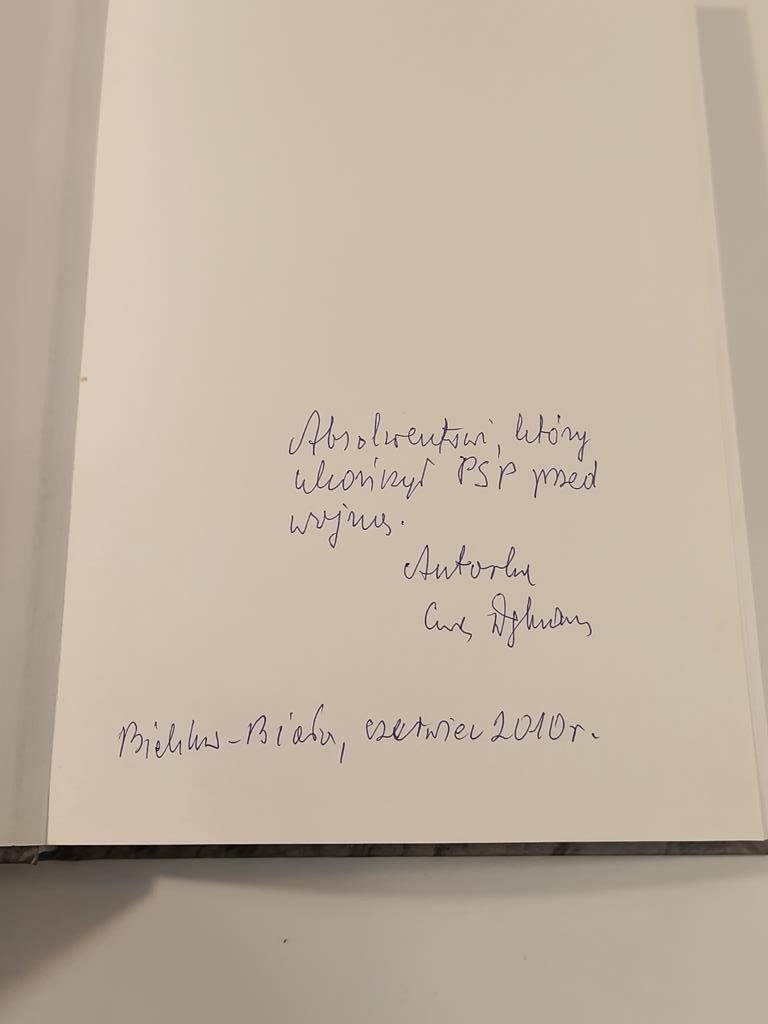 Absolwentowi, który
ukończył PSP przed
wojną.
Autorka
Bielsko-Biała, czerwiec 2010 r.